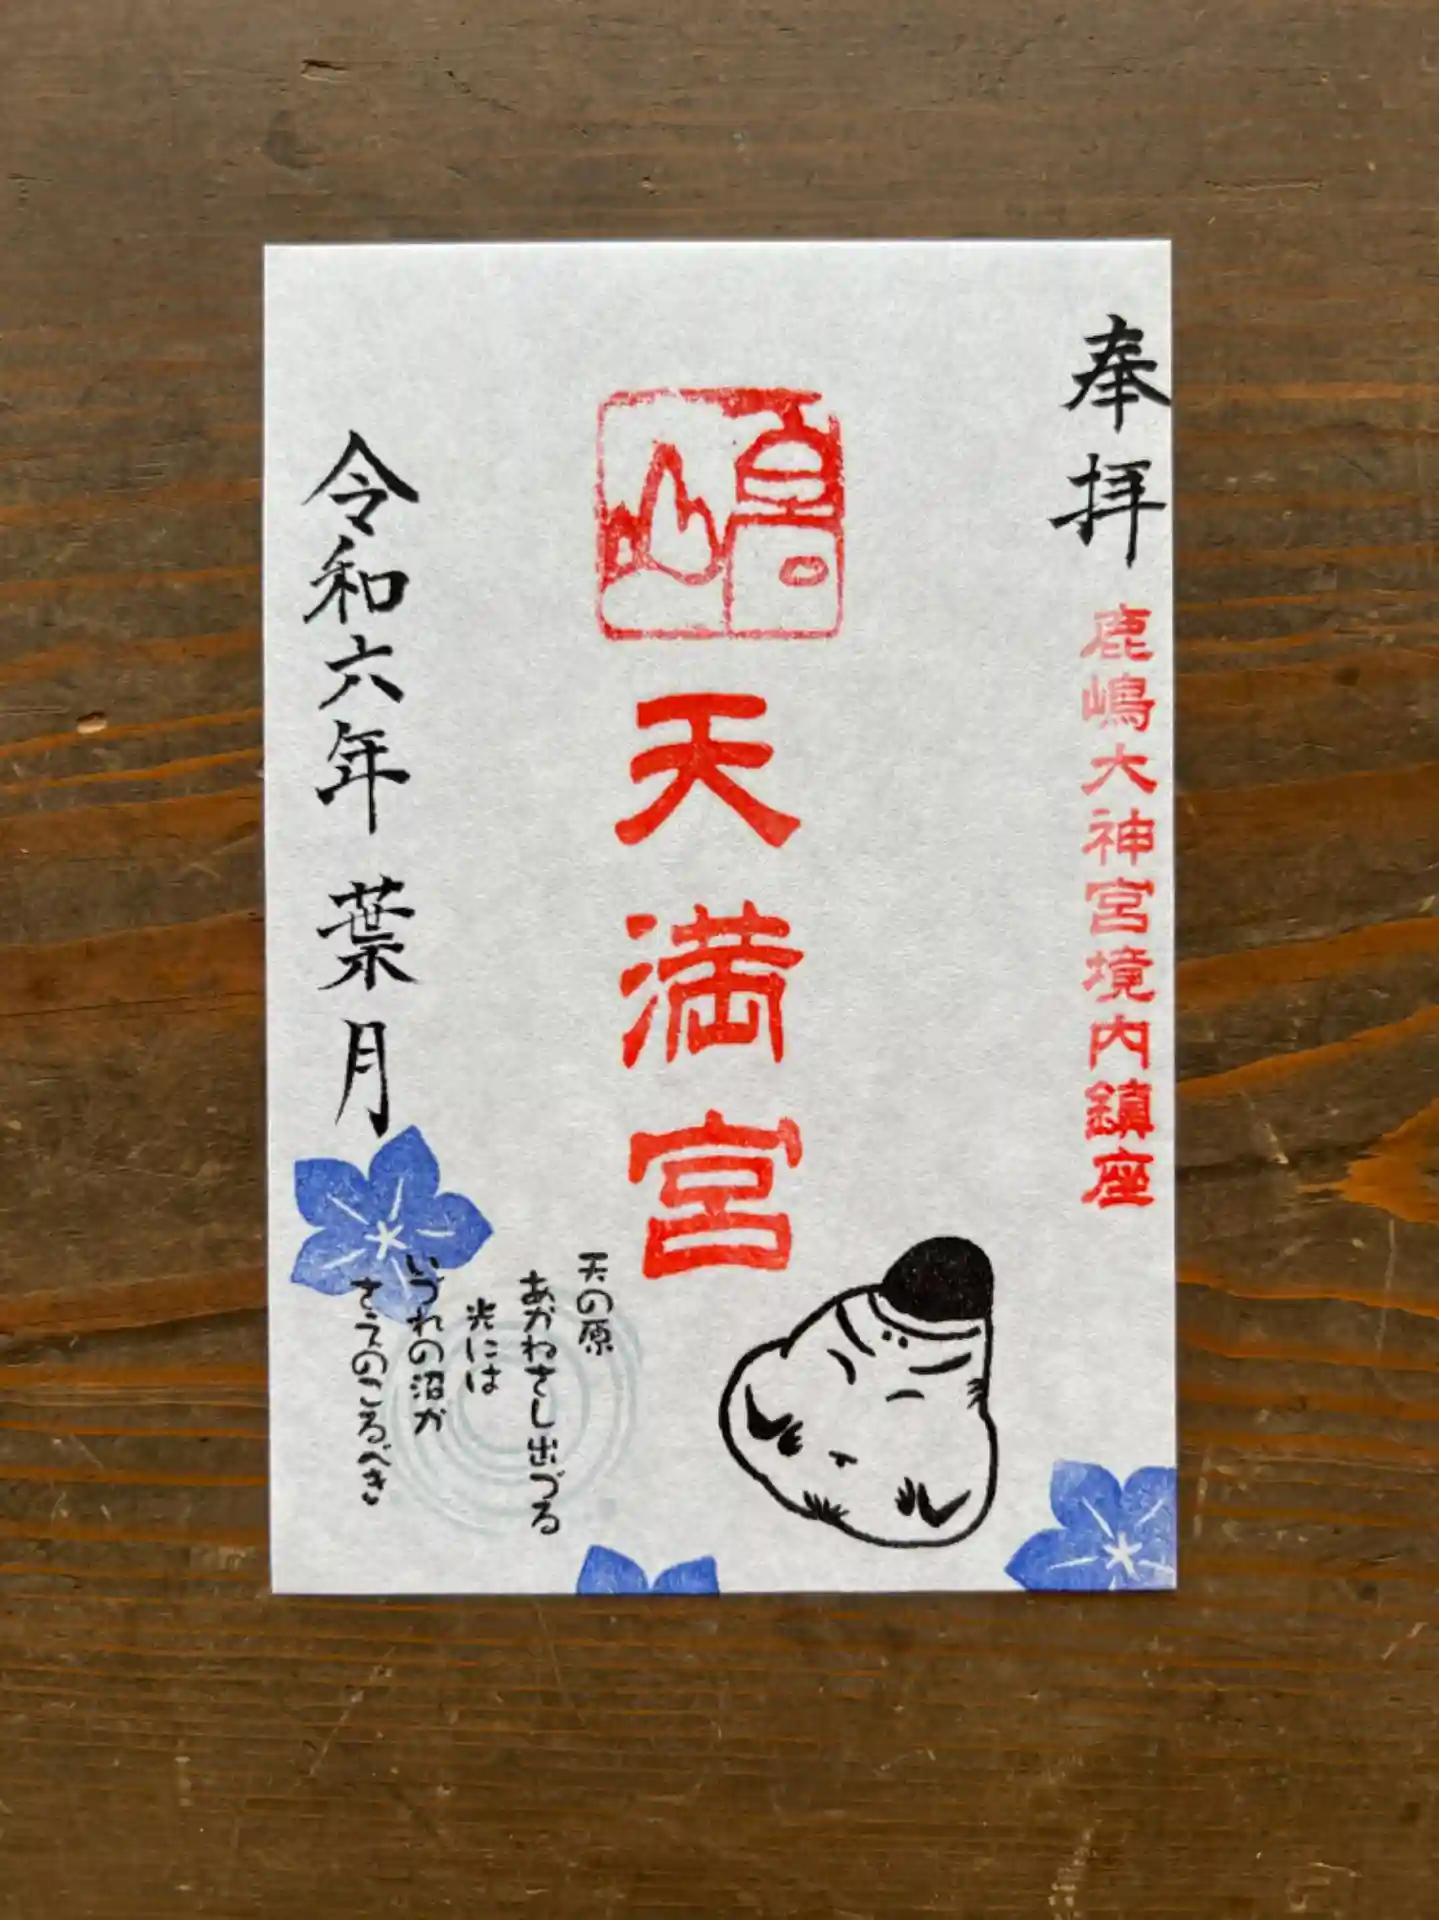 奉拝
鹿嶋大神宮境内鎮座
嶋
天満宮
天の原
あかねさし出づる
光には
いづれの沼か
さえのこるべき
令和六年 葉月